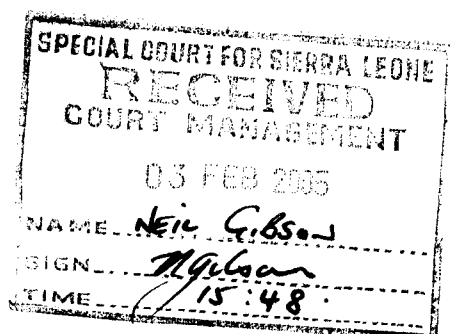 SPECIAL COURT FOR SIERRA LEONE
RECEIVED
COURT MANAGEMENT
03 FEB 2005
NAME NEIL GIBSON
SIGN NGibson
TIME 15:48